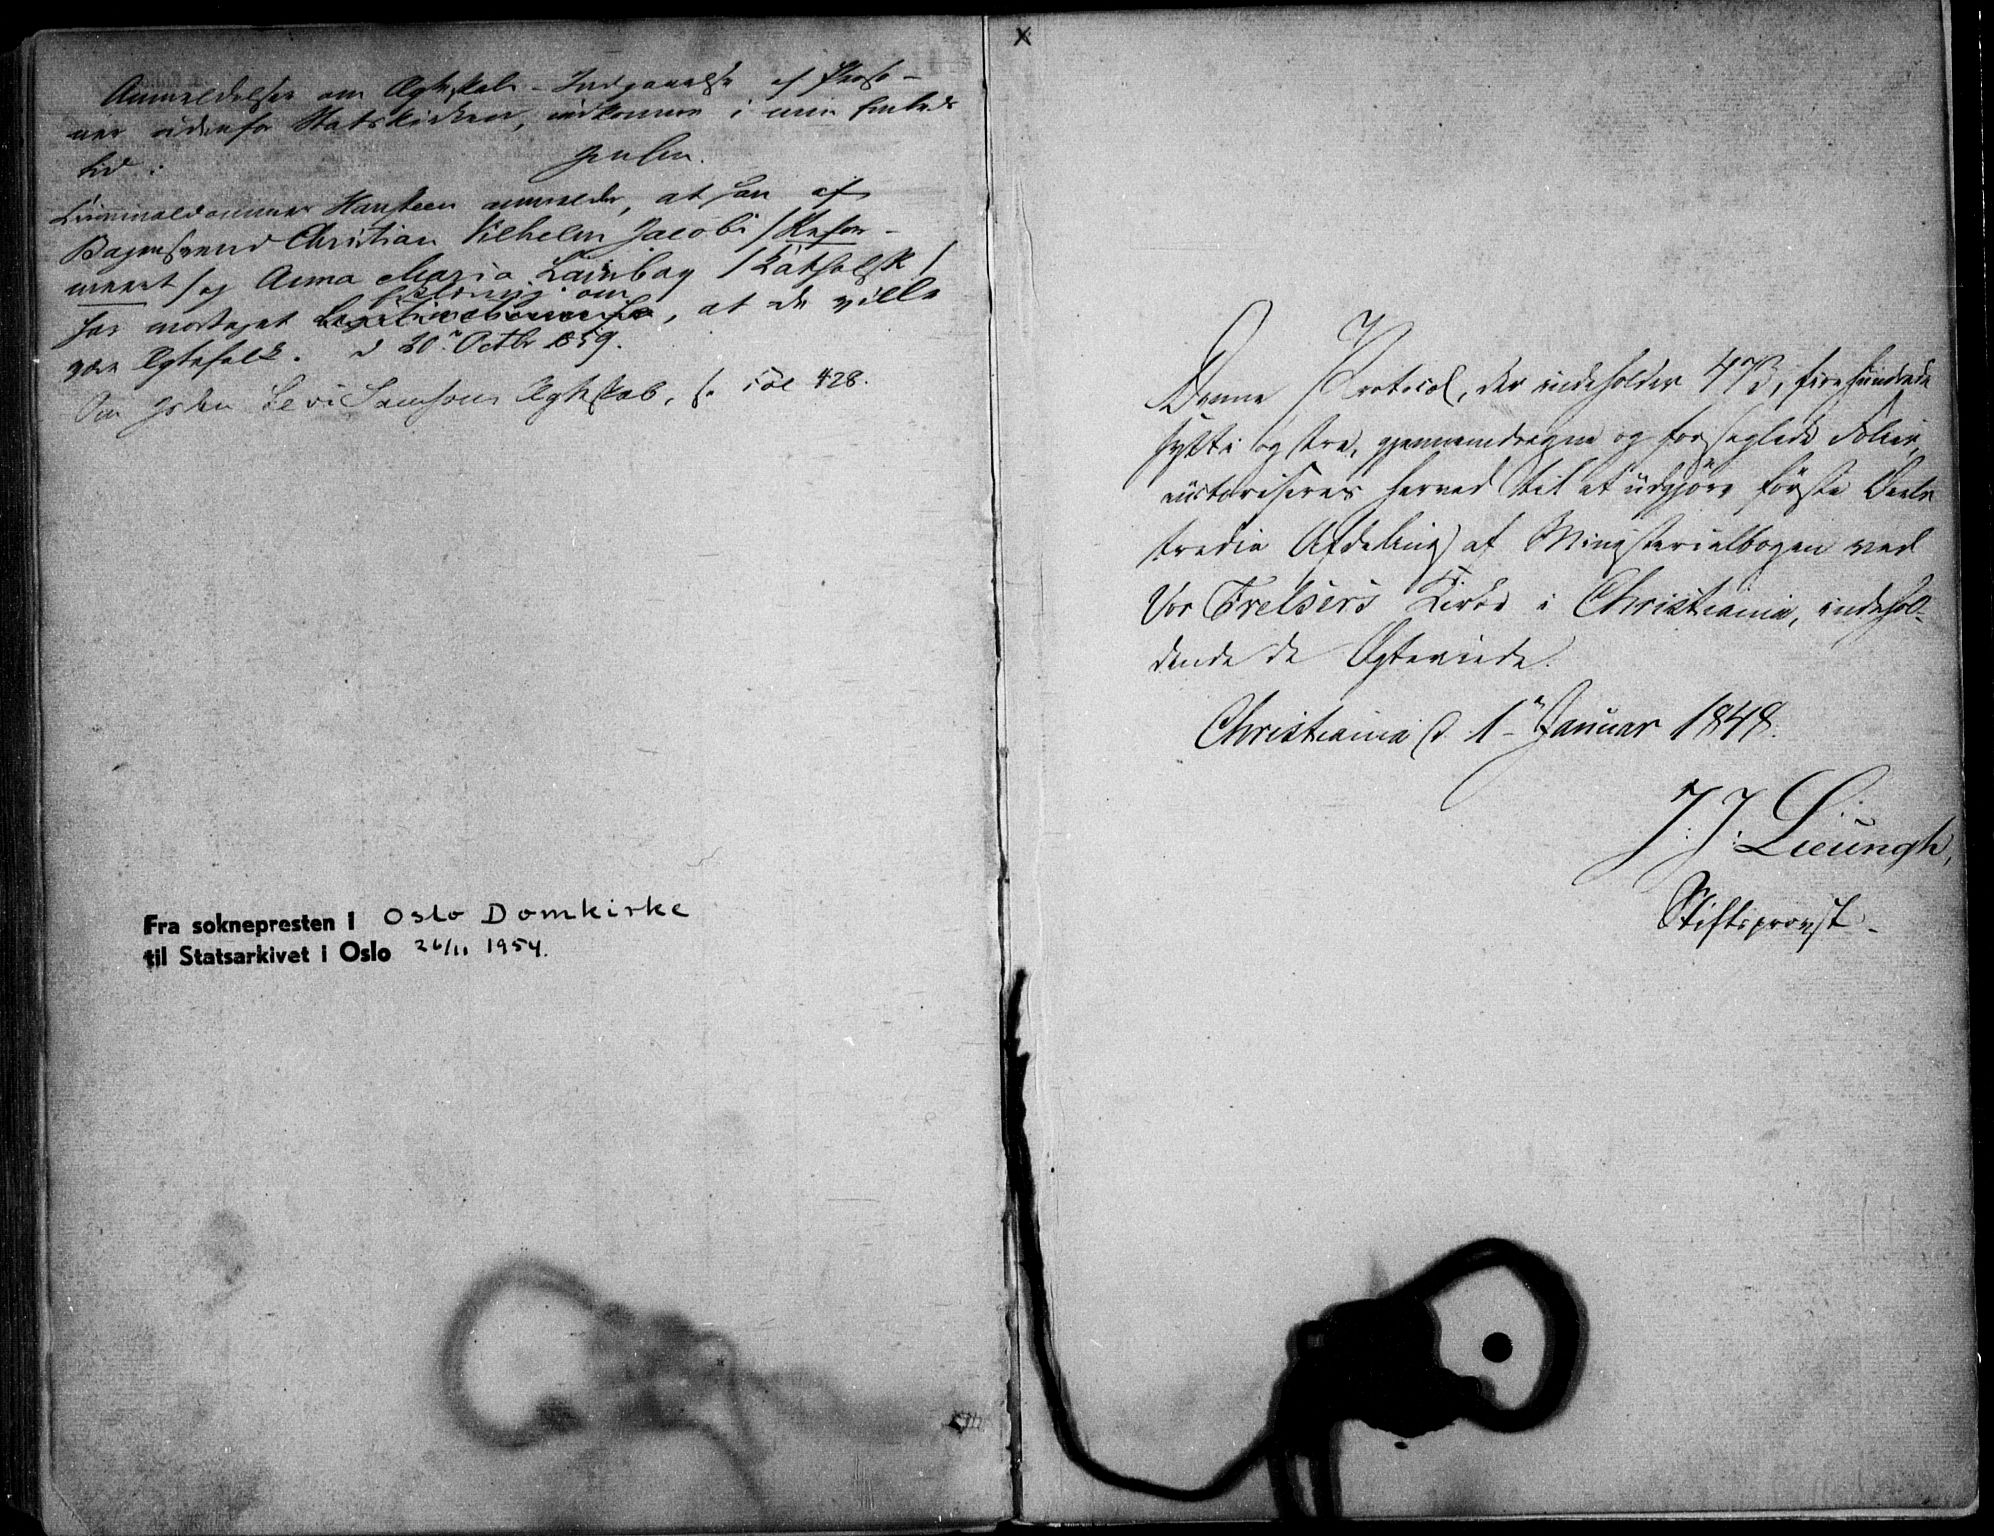 Anmeldelser om Ægteskabs-Indgaaelse af Perso-
ner udenfor Statskirken, indkomne i min Embeds
tid:
Jensen.
Criminaldommer Hansteen anmelder, at han af
Bagersvend Christian Vilhelm Jacobi /Refor-
meert/ og Anna Maria /Katholsk/
har modtaget Erklæring om, at de ville
være Ægtefolk. d 20n Octbr 1859.
Om Jøden Levi Samsons Ægteskab, s. Fol 428.
Fra soknepresten i Oslo Domkirke
til Statsarkivet i Oslo 26/11 1954.
x
Denne Protocol, der indeholder 473, fire hundrede
sytti og tre, gjennemdragne og forseglede Folier,
autoriseres herved til at udgjøre første Deels
tredie Afdeling af Ministerialbogen ved
Vor Frelsers Kirke i Christiania, indehol-
dende de Ægteviede.
Christiania d. 1n Januar 1848.
J. J. Lieungh,
Stiftsprovst.